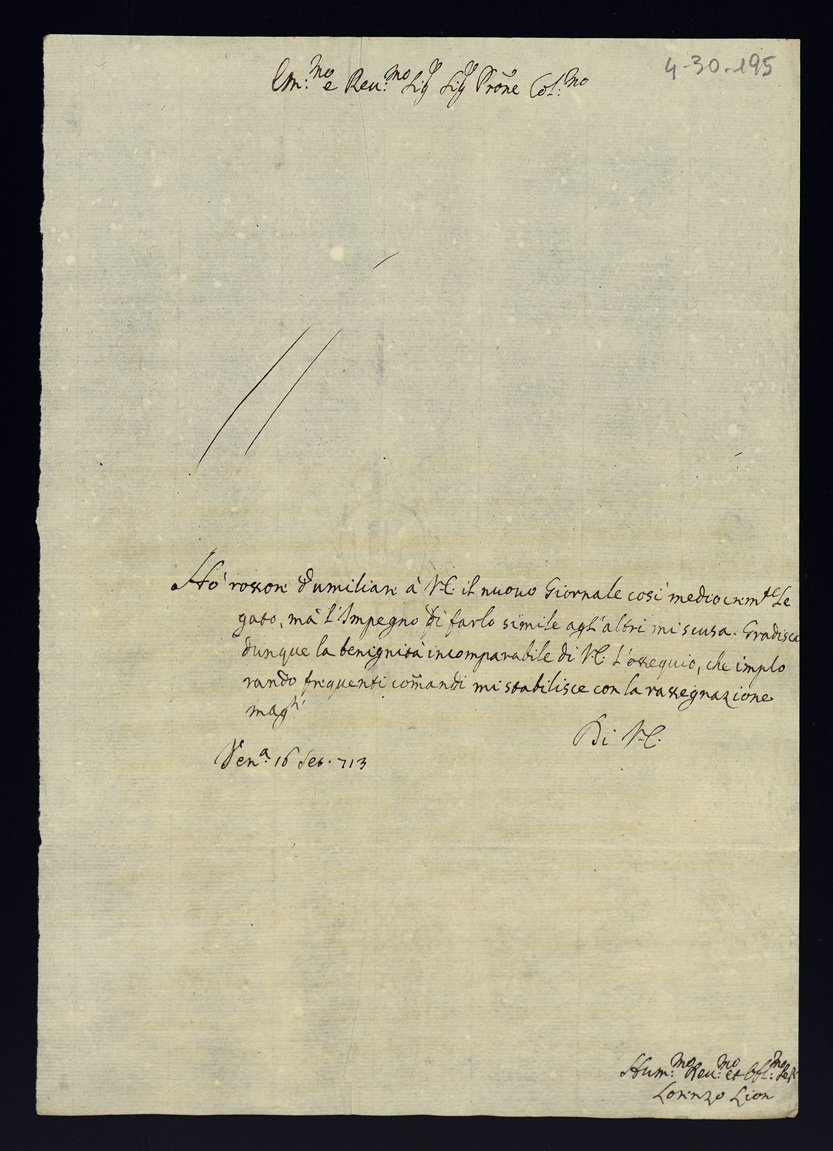 4-30-195
Em:mo e Reu:mo Sig Sig Prone Col:mo
Hò rossor d'umiliar à VE il nuouo Giornale così mediocremte le
gato, mà l'Impegno di farlo simile agl'altri mi scusa. Gradisca
dunque la benignità incomparabile di VE l'ossequio, che implo
rando frequenti comandi mi stabilisce con la rassegnazione
magre
Di VE.
Vena: 16 Set. 713
Hum:mo Reu:mo et Obl:mo Ser
Lorenzo Lion